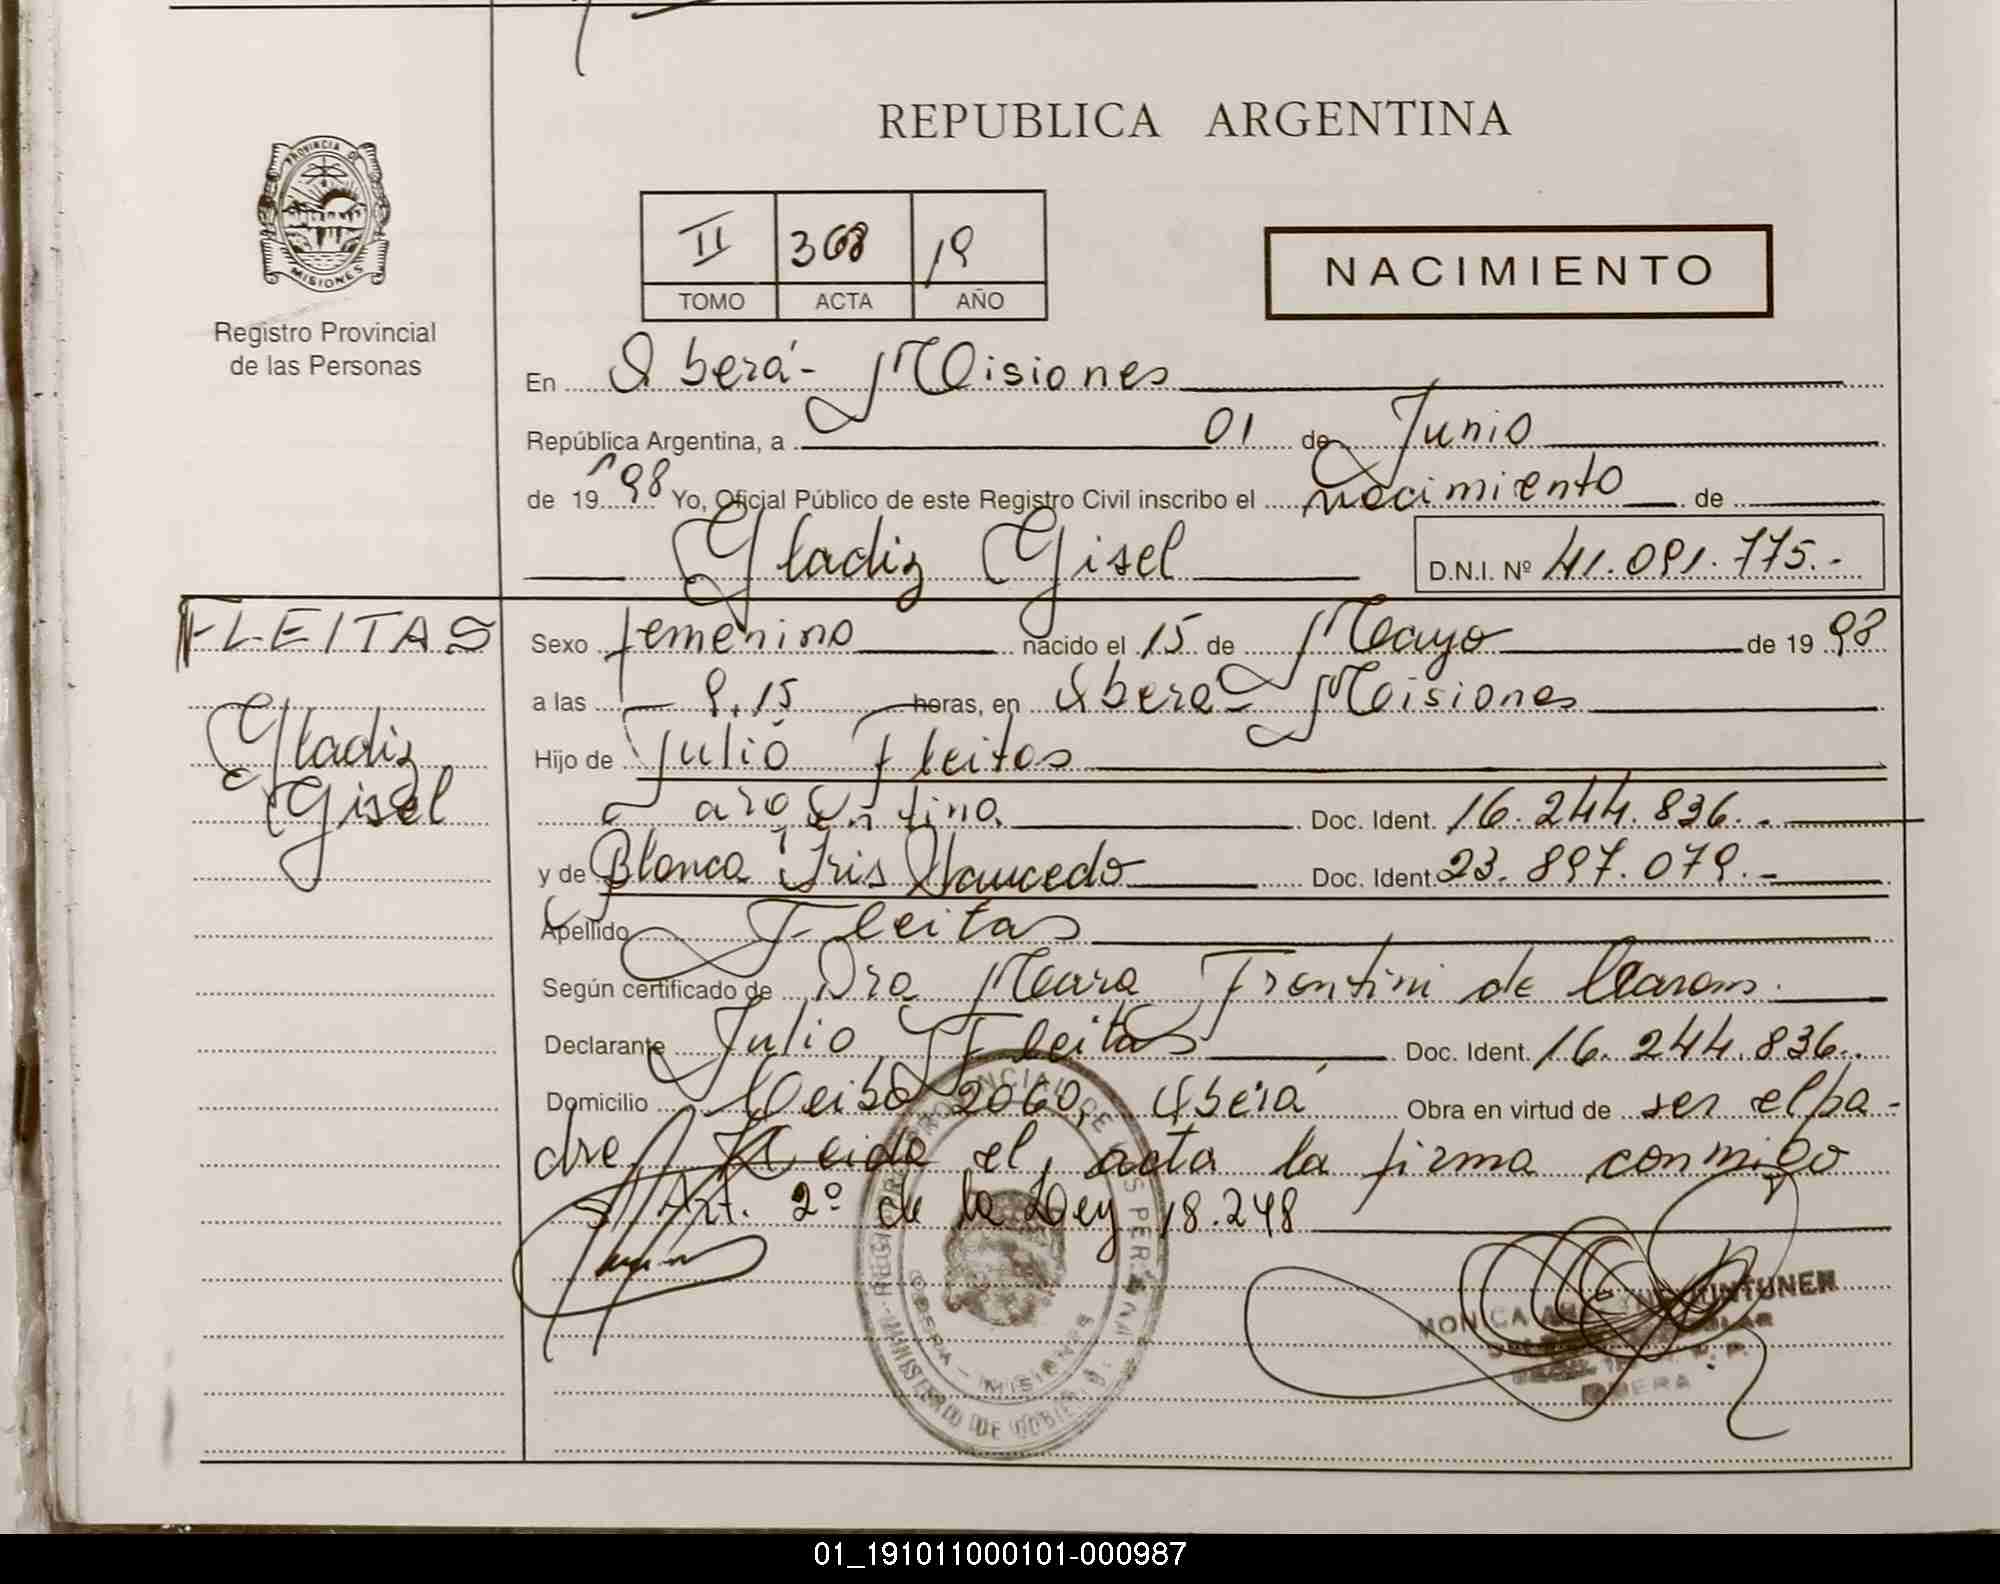 REPUBLICA ARGENTINA
PROVINCIA DE
MISIONES
Registro Provincial
de las Personas
II 368 19
TOMO ACTA AÑO
NACIMIENTO
En Oberá - Misiones
República Argentina, a 01 de Junio
de 19 98 Yo, Oficial Público de este Registro Civil inscribo el nacimiento de
Gladiz Gisel D.N.I. Nº 41.091.775.-
FLEITAS
Gladiz
Gisel
Sexo femenino nacido el 15 de Mayo de 19 98
a las 9,15 horas, en Oberá - Misiones
Hijo de Julio Fleitas
argentino, Doc. Ident. 16.244.836.-
y de Blanca Iris Doc. Ident. 23.897.079.-
Apellido Fleitas
Según certificado de Dra Mara Frontini de
Declarante Julio Fleitas Doc. Ident. 16.244.836.
Domicilio Ceibo 2060, Oberá Obra en virtud de ser el pa-
dre Leida el acta la firma conmigo
s/ Art. 2º de la Ley 18.248
REGISTRO PROVINCIAL DE LAS PERSONAS
OBERA - MISIONES
MINISTERIO DE GOBIERNO
MONICA
OBERA
01_191011000101-000987